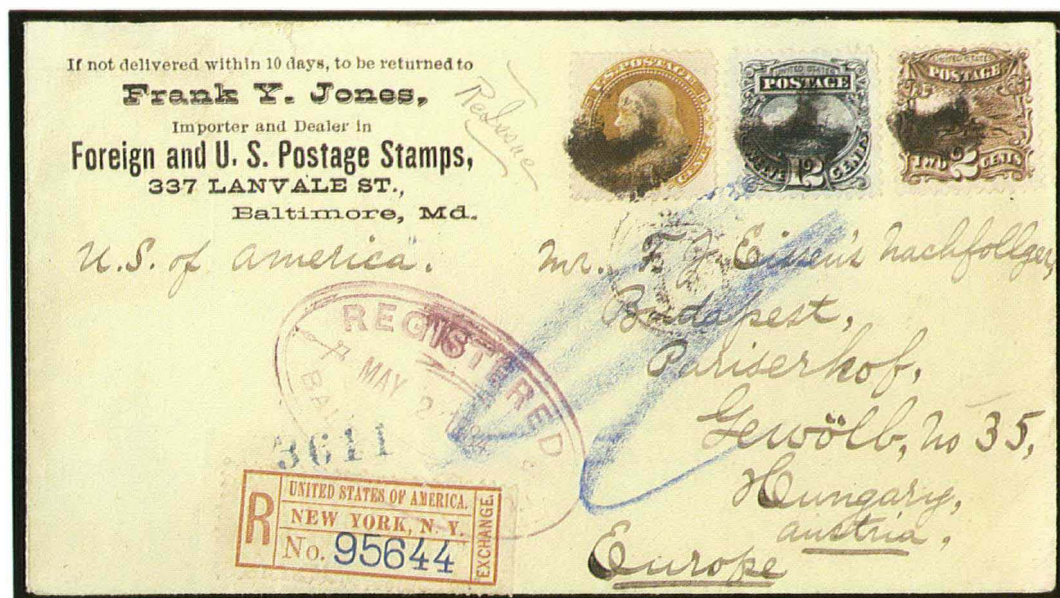 If not delivered within 10 days, to be returned to
Frank Y. Jones,
Importer and Dealer in
Foreign and U. S. Postage Stamps,
337 LANVALE ST.,
Baltimore, Md.
Reissue
U.S. POSTAGE
UNITED STATES
POSTAGE
12
CENTS
UNITED STATES
POSTAGE
TWO 2 CENTS
U.S. of America.
Mr. F. J. Eissen's Nachfollger,
Budapest,
Pariserhof,
Gewölb, No 35,
Hungary,
Austria.
Europe
REGISTERED
MAY 2
3611
R
UNITED STATES OF AMERICA.
NEW YORK, N. Y.
No. 95644
EXCHANGE